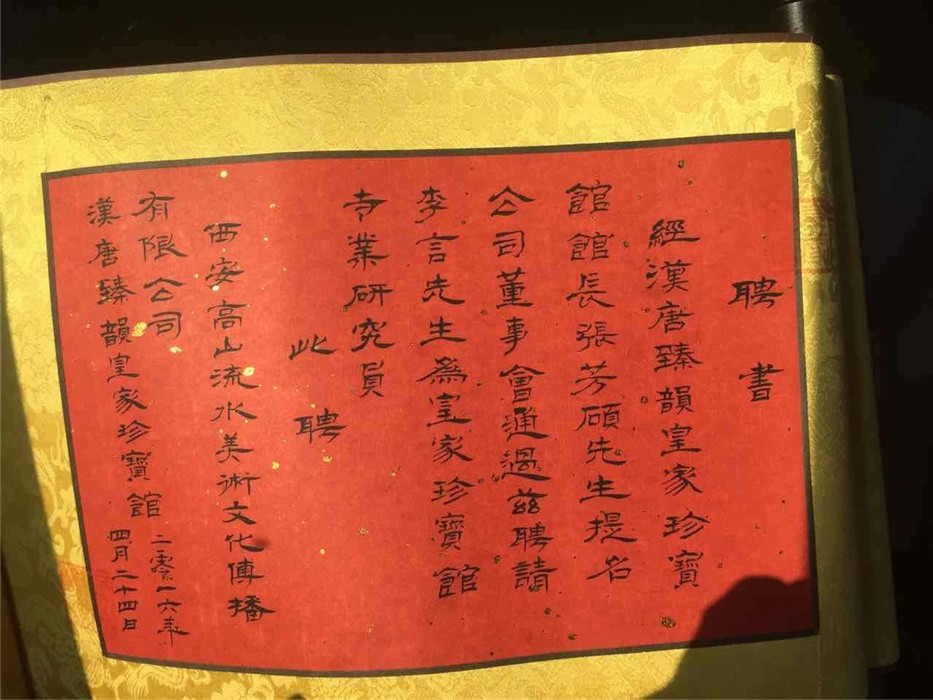 聘書
經漢唐臻韻皇家珍寶
館館長張芳碩先生提名
公司董事會通過兹聘請
李言先生為皇家珍寶館
寺業研究員
此聘
西安高山流水美術文化傳播
有限公司
漢唐臻韻皇家珍寶館
二零一六年
四月二十四日